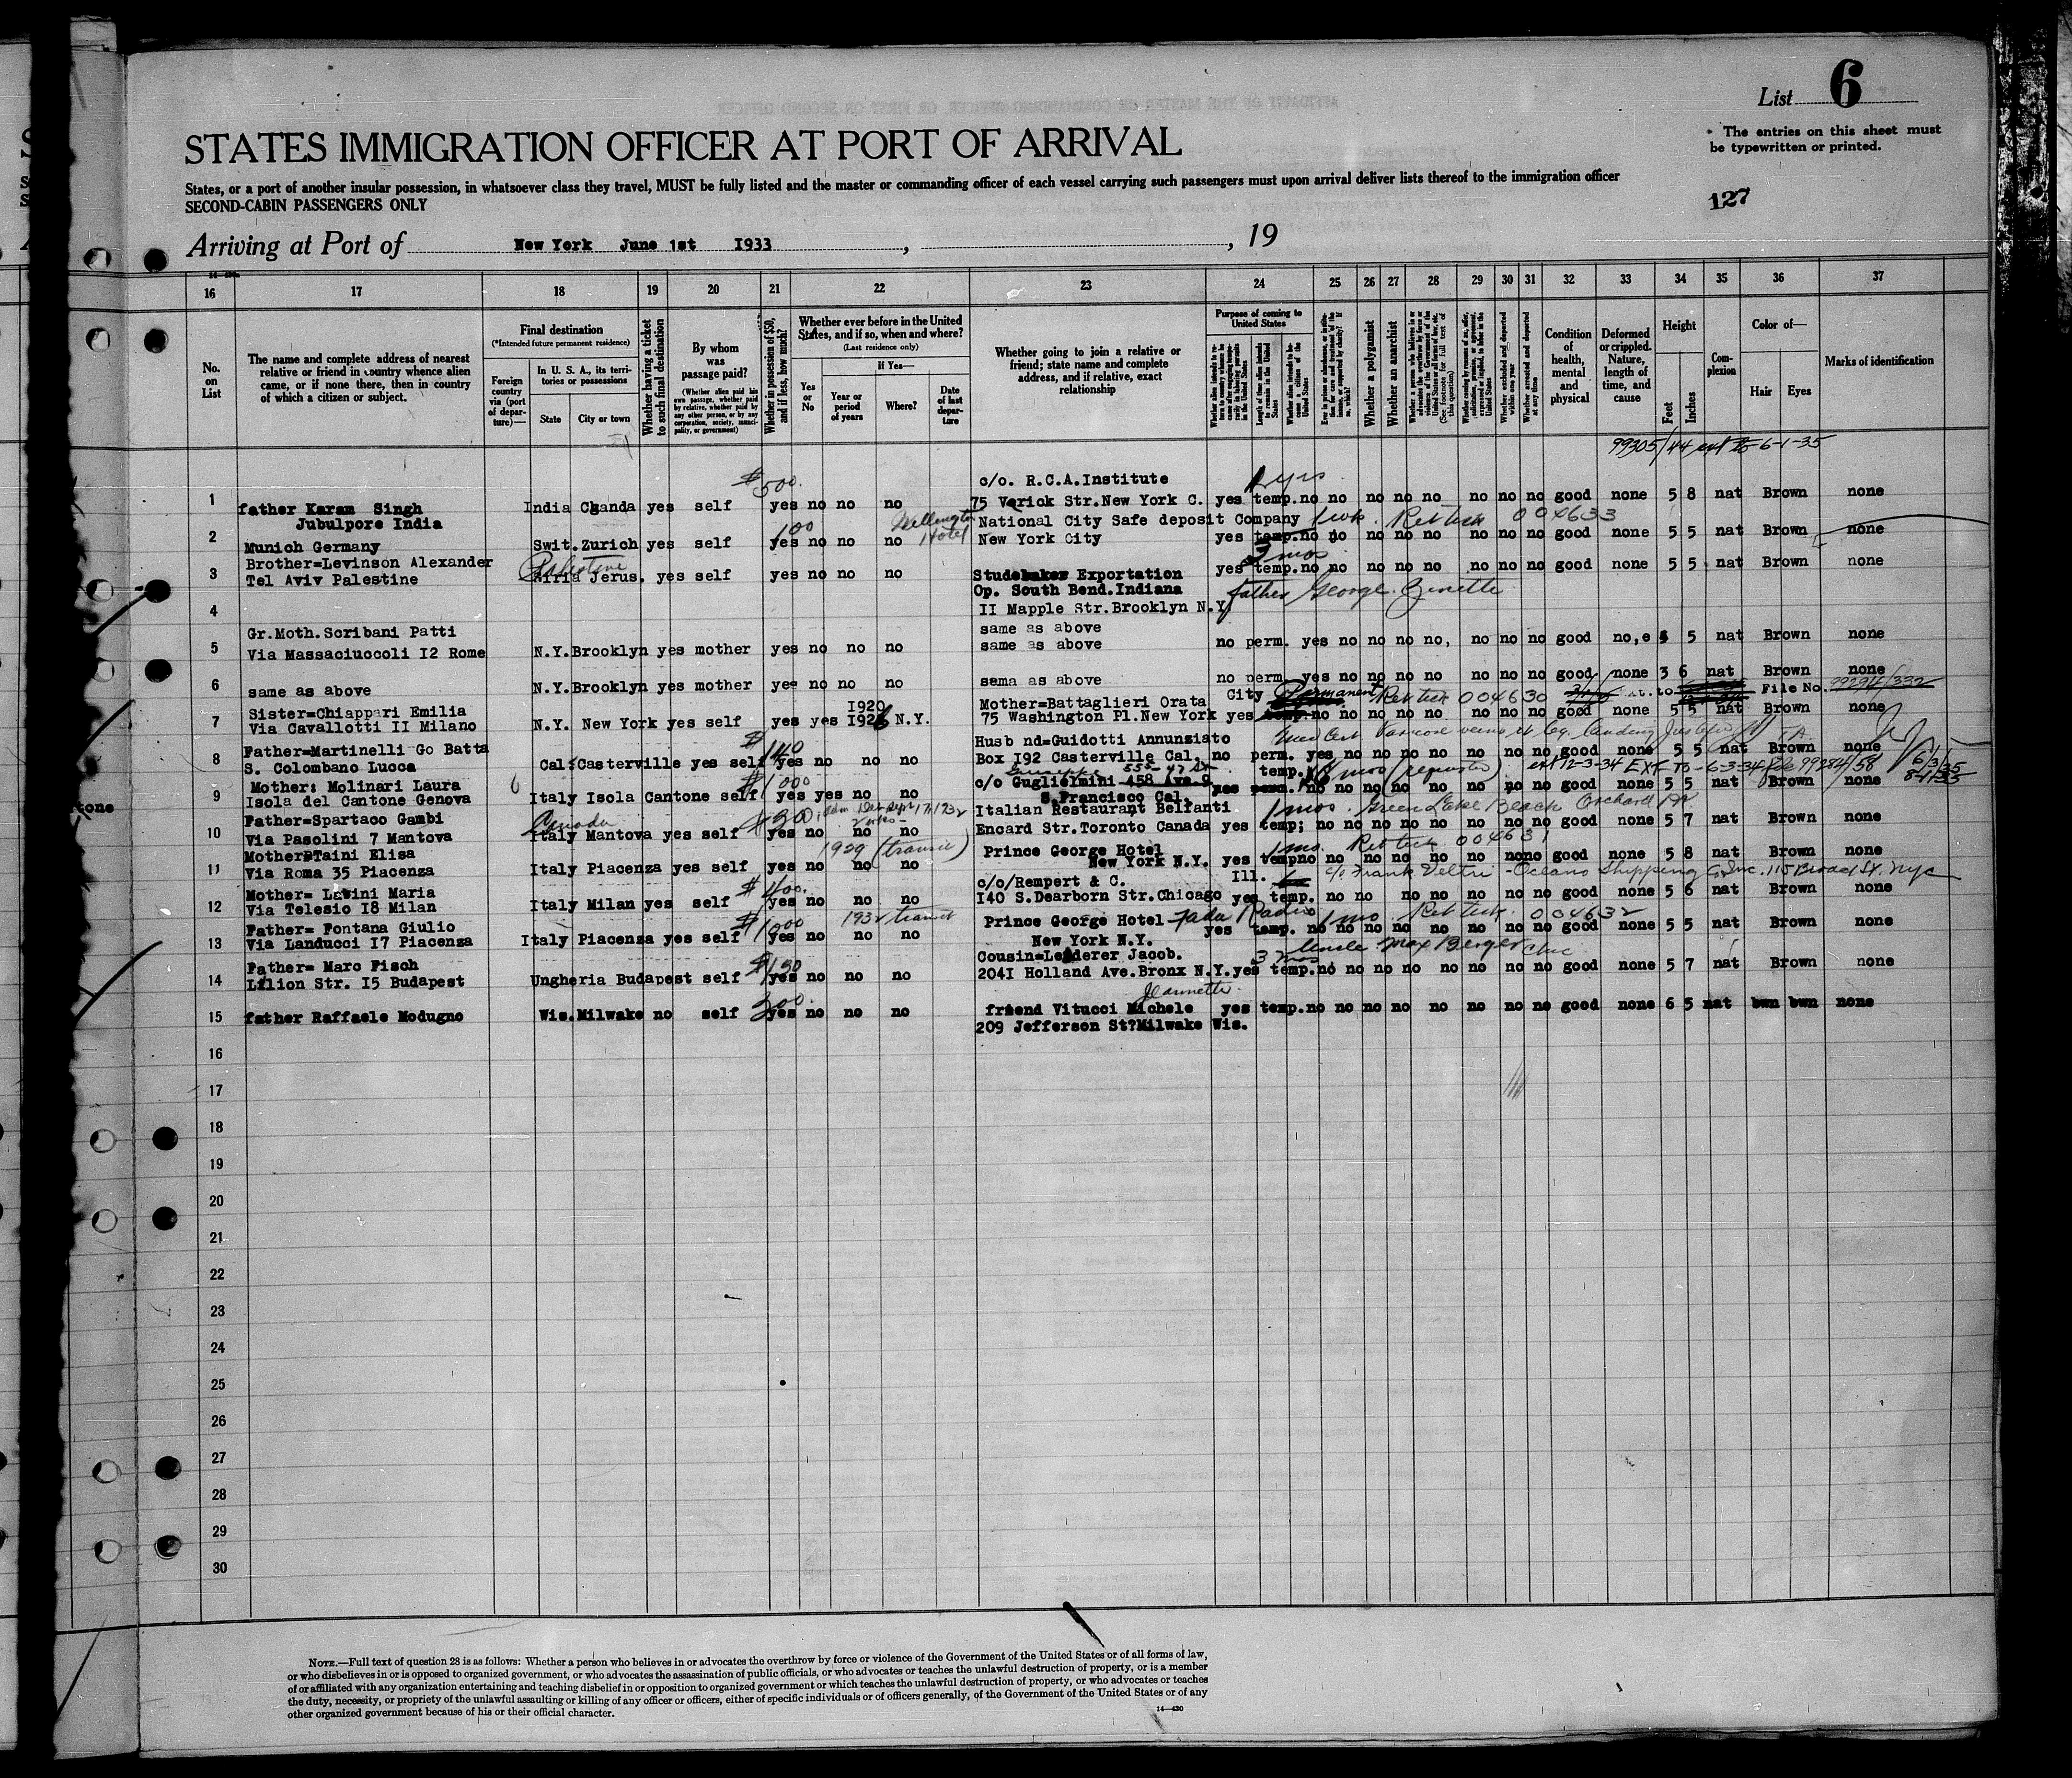 List 6
* The entries on this sheet must
be typewritten or printed.
STATES IMMIGRATION OFFICER AT PORT OF ARRIVAL
States, or a port of another insular possession, in whatsoever class they travel, MUST be fully listed and the master or commanding officer of each vessel carrying such passengers must upon arrival deliver lists thereof to the immigration officer
SECOND-CABIN PASSENGERS ONLY
127
Arriving at Port of New York June 1st 1933 , , 19
16 17 18 19 20 21 22 23 24 25 26 27 28 29 30 31 32 33 34 35 36 37
No. on List
The name and complete address of nearest
relative or friend in country whence alien
came, or if none there, then in country
of which a citizen or subject.
Final destination
(*Intended future permanent residence)
Foreign country via (port of departure)—
In U. S. A., its territories or possessions
State City or town
Whether having a ticket to such final destination
By whom was passage paid?
(Whether alien paid his own passage, whether paid by relative, whether paid by any other person, or by any corporation, society, municipality, or government)
Whether in possession of $50, and if less, how much?
Whether ever before in the United States, and if so, when and where?
(Last residence only)
If Yes—
Yes or No
Year or period of years
Where?
Date of last departure
Whether going to join a relative or
friend; state name and complete
address, and if relative, exact
relationship
Purpose of coming to United States
Whether a polygamist
Whether an anarchist
Condition of health, mental and physical
Deformed or crippled. Nature, length of time, and cause
Height
Feet Inches
Complexion
Color of—
Hair Eyes
Marks of identification
99305/44 ext to 6-1-35
$500. c/o. R.C.A.Institute
1 father Karam Singh India Chanda yes self yes no no no 75 Varick Str.New York C. yes temp. no no no no no no no no good none 5 8 nat Brown none
Jubulpore India 100 Wellington Hotel National City Safe deposit Company 1 wk. Ret tick 004633
2 Munich Germany Swit. Zurich yes self yes no no no New York City yes temp. no no no no no no no no good none 5 5 nat Brown none
Brother=Levinson Alexander Palestine 3 mos
3 Tel Aviv Palestine Siria Jerus. yes self yes no no no Studebaker Exportation yes temp. no no no no no no no no good none 5 5 nat Brown none
Op. South Bend.Indiana father George
4 II Mapple Str.Brooklyn N.Y.
Gr.Moth.Scribani Patti same as above
5 Via Massaciuccoli I2 Rome N.Y.Brooklyn yes mother yes no no no same as above no perm. yes no no no no, no no no good no,e 5 nat Brown none
6 same as above N.Y.Brooklyn yes mother yes no no no sema as above no perm. yes no no no no no no no good none 3 6 nat Brown none
Sister=Chiappari Emilia 1920 Mother=Battaglieri Orata City Permanent Ret tick 004630 File No. 99294/332
7 Via Cavallotti II Milano N.Y. New York yes self yes yes 1926 N.Y. 75 Washington Pl.New York yes temp. no no no no no no no no good none 5 5 nat Brown none
Father=Martinelli Go Batta $140 Husb nd=Guidotti Annunziato
8 S. Colombano Lucca Cal. Casterville yes self yes no no no Box I92 Casterville Cal. no perm. yes no no no no no no no good none 5 5 nat Brown none
Mother: Molinari Laura $1000 c/o Guglielmini 458 Ave 9 temp. 6 mos ext 12-3-34 EXT TO-6-3-34 file 99284/58 6/3/35
9 Isola del Cantone Genova Italy Isola Cantone self yes yes no no S.Francisco Cal. yes perm. no no no no no no no no good none 5 5 nat Brown none
Father=Spartaco Gambi Canada $300 Italian Restaurant Belfanti 1 mos. Green Lake Beach Orchard
10 Via Pasolini 7 Mantova Italy Mantova yes self yes no no no Encard Str.Toronto Canada yes temp; no no no no no no no no good none 5 7 nat Brown none
Mother=Taini Elisa 1929 (transit) Prince George Hotel 1 mo. Ret tick. 004631
11 Via Roma 35 Piacenza Italy Piacenza yes self yes no no no New York N.Y. yes temp no no no no no no no no good none 5 8 nat Brown none
Mother= Lavini Maria $400. c/o/Rempert & C. Ill. c/o Frank Veltri - Oceans Shipping Co. Inc. 115 Broad St. Nyc
12 Via Telesio I8 Milan Italy Milan yes self yes no no no I40 S.Dearborn Str.Chicago yes temp. no no no no no no no no good none 5 6 nat Brown none
Father= Fontana Giulio $1000 1932 transit Prince George Hotel Fada Radio 1 mo Ret tick. 004632
13 Via Landucci I7 Piacenza Italy Piacenza yes self yes no no no New York N.Y. yes temp. no no no no no no no no good none 5 5 nat Brown none
Father= Marc Fisch $150 Cousin=Lederer Jacob. 3 mos Uncle Max Berger
14 Lilion Str. I5 Budapest Ungheria Budapest self yes no no no 204I Holland Ave.Bronx N.Y. yes temp. no no no no no no no no good none 5 7 nat Brown none
200. Jeannette
15 father Raffaele Modugno Wis.Milwake no self yes no no no friend Vitucci Michele yes temp. no no no no no no no no good none 6 5 nat bwn bwn none
209 Jefferson St?Milwake Wis.
16
17
18
19
20
21
22
23
24
25
26
27
28
29
30
NOTE.—Full text of question 28 is as follows: Whether a person who believes in or advocates the overthrow by force or violence of the Government of the United States or of all forms of law,
or who disbelieves in or is opposed to organized government, or who advocates the assassination of public officials, or who advocates or teaches the unlawful destruction of property, or is a member
of or affiliated with any organization entertaining and teaching disbelief in or opposition to organized government or which teaches the unlawful destruction of property, or who advocates or teaches
the duty, necessity, or propriety of the unlawful assaulting or killing of any officer or officers, either of specific individuals or of officers generally, of the Government of the United States or of any
other organized government because of his or their official character.
14—430